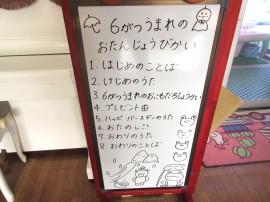 6がつうまれの
おたんじょうびかい
1. はじめのことば
2. はじめのうた
3. 6がつうまれのおともだちしょうかい
4. プレゼント
5. ハッピーバースデーのうた
6. おたのしみ
7. おわりのうた
8. おわりのことば